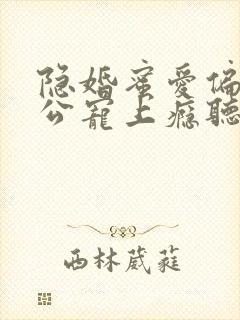 隐婚蜜爱偏
公宠上瘾聽
西林葳蕤